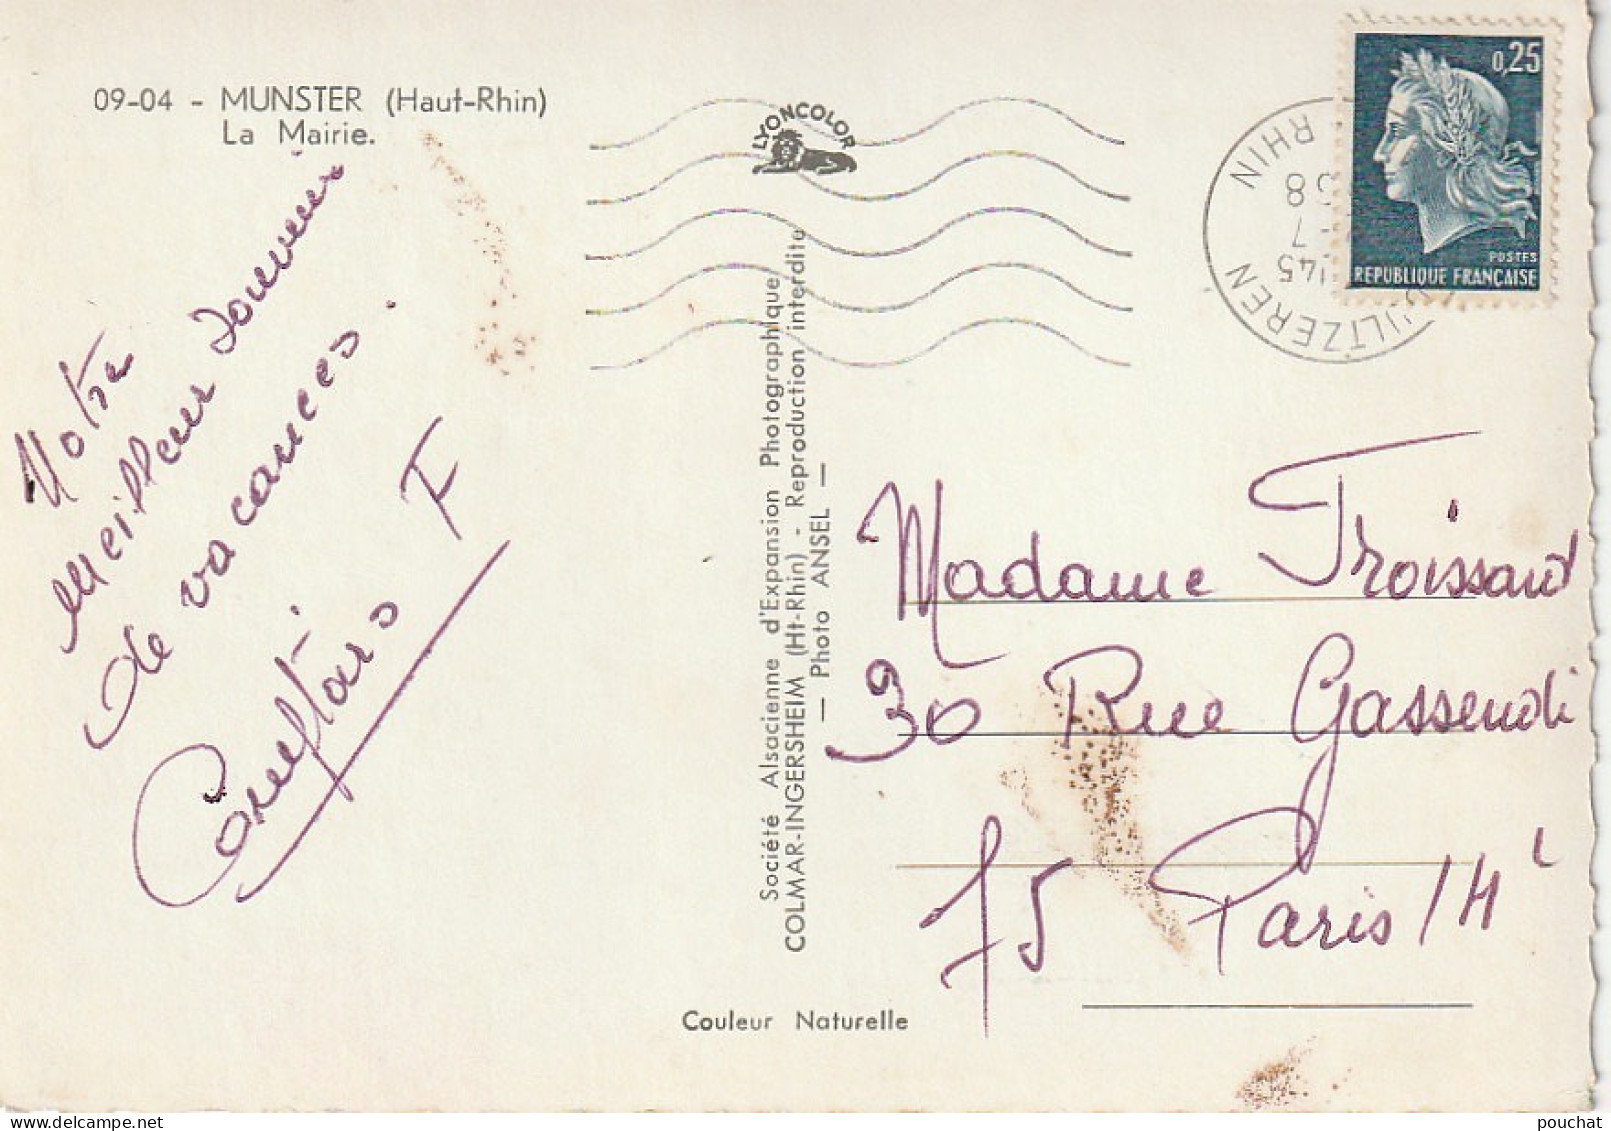 09-04 - MUNSTER (Haut-Rhin)
La Mairie.
Notre
meilleur souvenir
de vacances.
F
LYONCOLOR
Société Alsacienne d'Expansion Photographique
COLMAR-INGERSHEIM (Ht-Rhin) - Reproduction interdite
— Photo ANSEL —
Couleur Naturelle
0,25
POSTES
REPUBLIQUE FRANÇAISE
RHIN
Madame Froissard
30 Rue Gassendi
75 Paris 14
pouchat